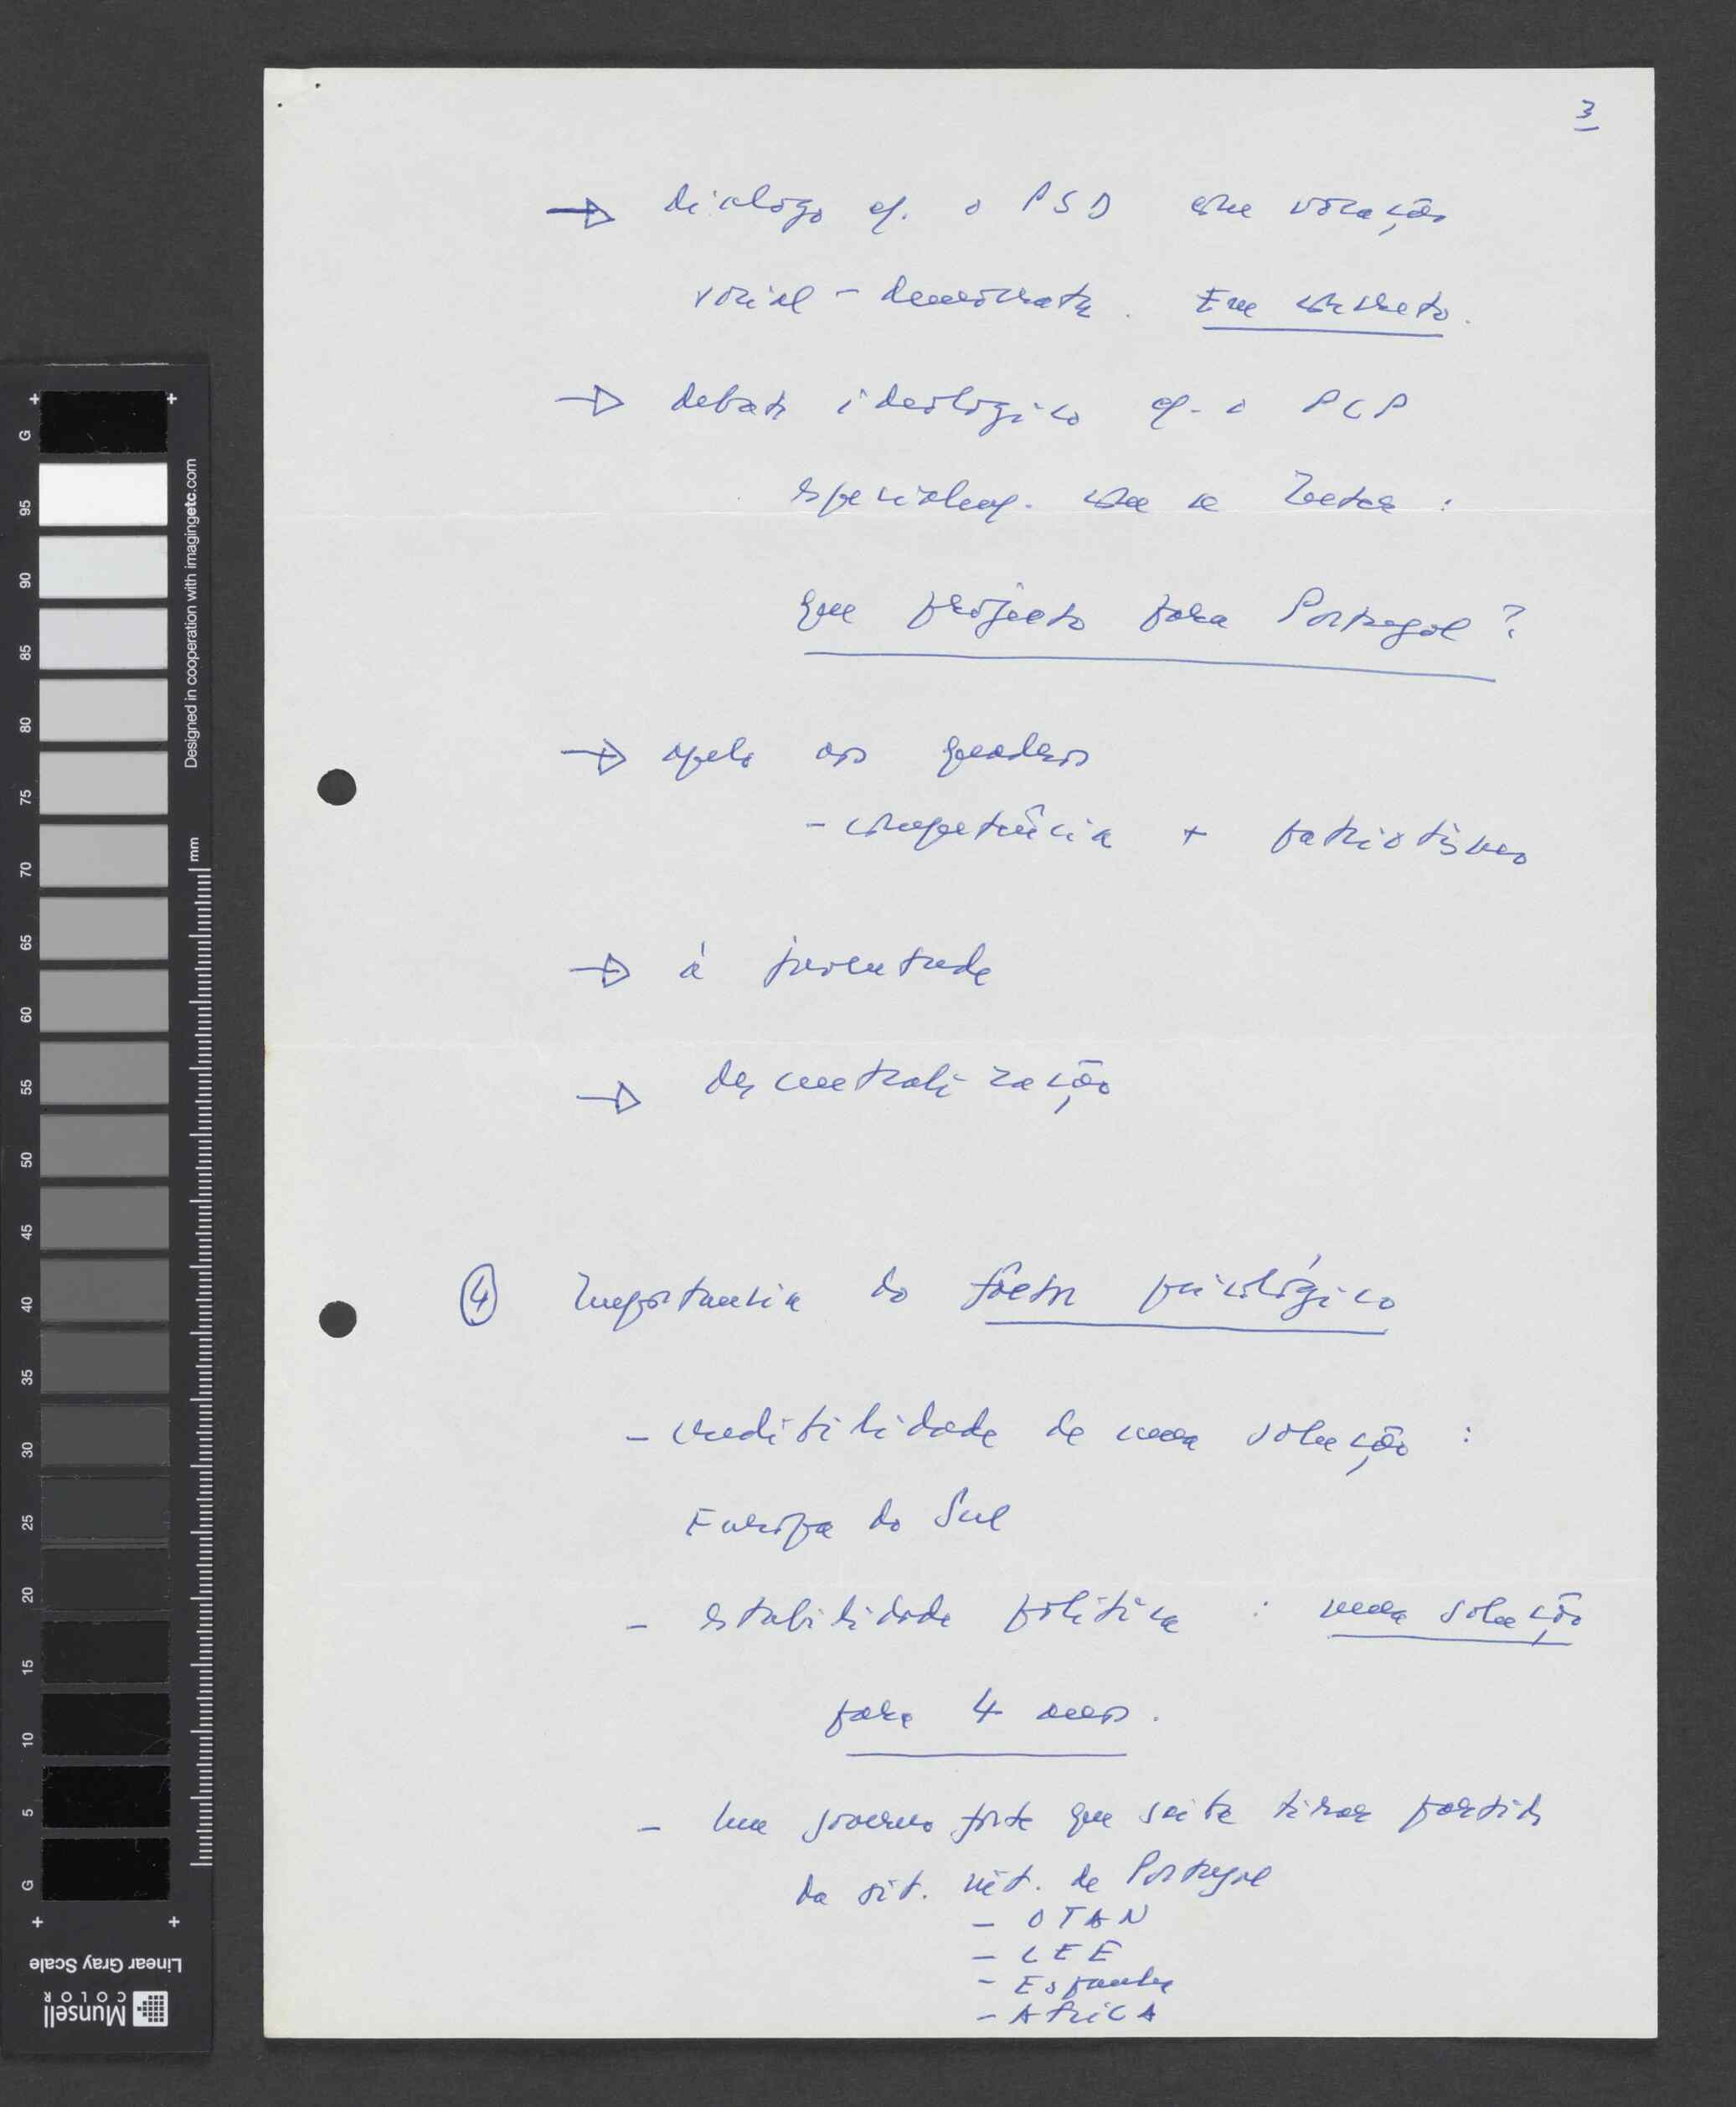 3
→ dialogo c/. o PSD com vocação
social - democrata. Em concreto.
→ debate ideológico c/. o PCP
especialm/. com a
que projecto para Portugal?
→ apelo aos quadros
- competência + patriotismo
→ à juventude
→ descentralização
④ Importancia do factor psicológico
- credibilidade de uma solução :
Europa do Sul
- estabilidade politica : uma solução
para 4 anos.
- Um governo forte que saiba tirar partido
da sit. de Portugal
- OTAN
- CEE
- Espanha
- AfricA
+ +
G
95
90
85
80
75
70
65
60
55
50
45
40
35
30
25
20
15
10
5
G
+ +
Designed in cooperation with imagingetc.com
mm
Linear Gray Scale
Munsell
COLOR